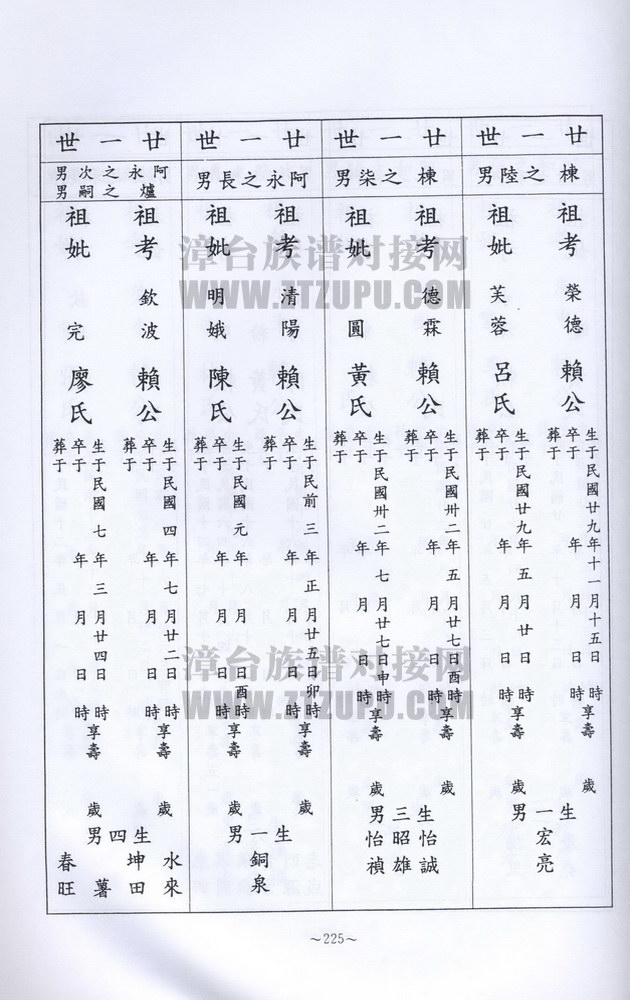 廿一世
棟之陸男
祖考 榮德 賴公
生于民國廿九年十一月十五日 時享壽 歲
卒于 年 月 日 時
葬于
祖妣 芙蓉 呂氏
生于民國廿九年五月廿日 時享壽 歲
卒于 年 月 日 時
葬于
生一男
宏亮
廿一世
棟之柒男
祖考 德霖 賴公
生于民國卅二年五月廿七日酉時享壽 歲
卒于 年 月 日 時
葬于
祖妣 圓 黃氏
生于民國卅二年七月廿七日申時享壽 歲
卒于 年 月 日 時
葬于
生三男
怡誠
昭雄
怡禎
廿一世
阿永之長男
祖考 清陽 賴公
生于民前三年正月廿五日卯時享壽 歲
卒于 年 月 日 時
葬于
祖妣 明娥 陳氏
生于民國元年 月 日酉時享壽 歲
卒于 年 月 日 時
葬于
生一男
銅泉
廿一世
阿永之次男
爐之嗣男
祖考 欽波 賴公
生于民國四年七月廿二日 時享壽 歲
卒于 年 月 日 時
葬于
祖妣 完 廖氏
生于民國七年三月廿四日 時享壽 歲
卒于 年 月 日 時
葬于
生四男
水來
坤田
薯
春旺
~225~
漳台族谱对接网
WWW.ZTZUPU.COM
漳台族谱对接网
WWW.ZTZUPU.COM